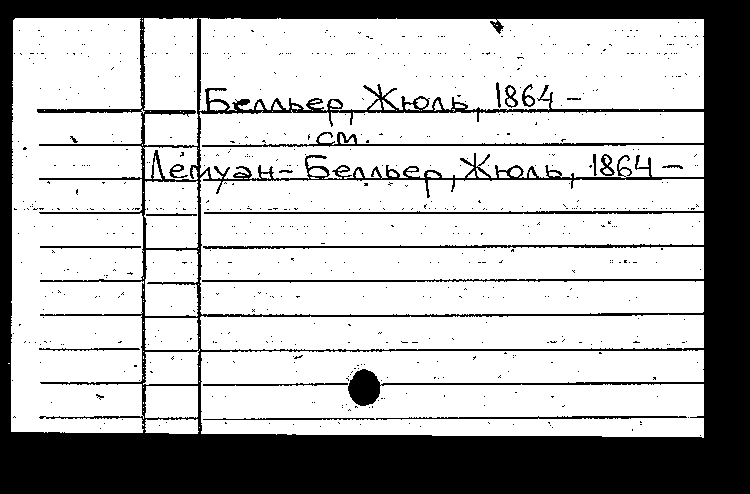 Белльер, Жюль, 1864 –
см.
Лемуан- Белльер, Жюль, 1864 –